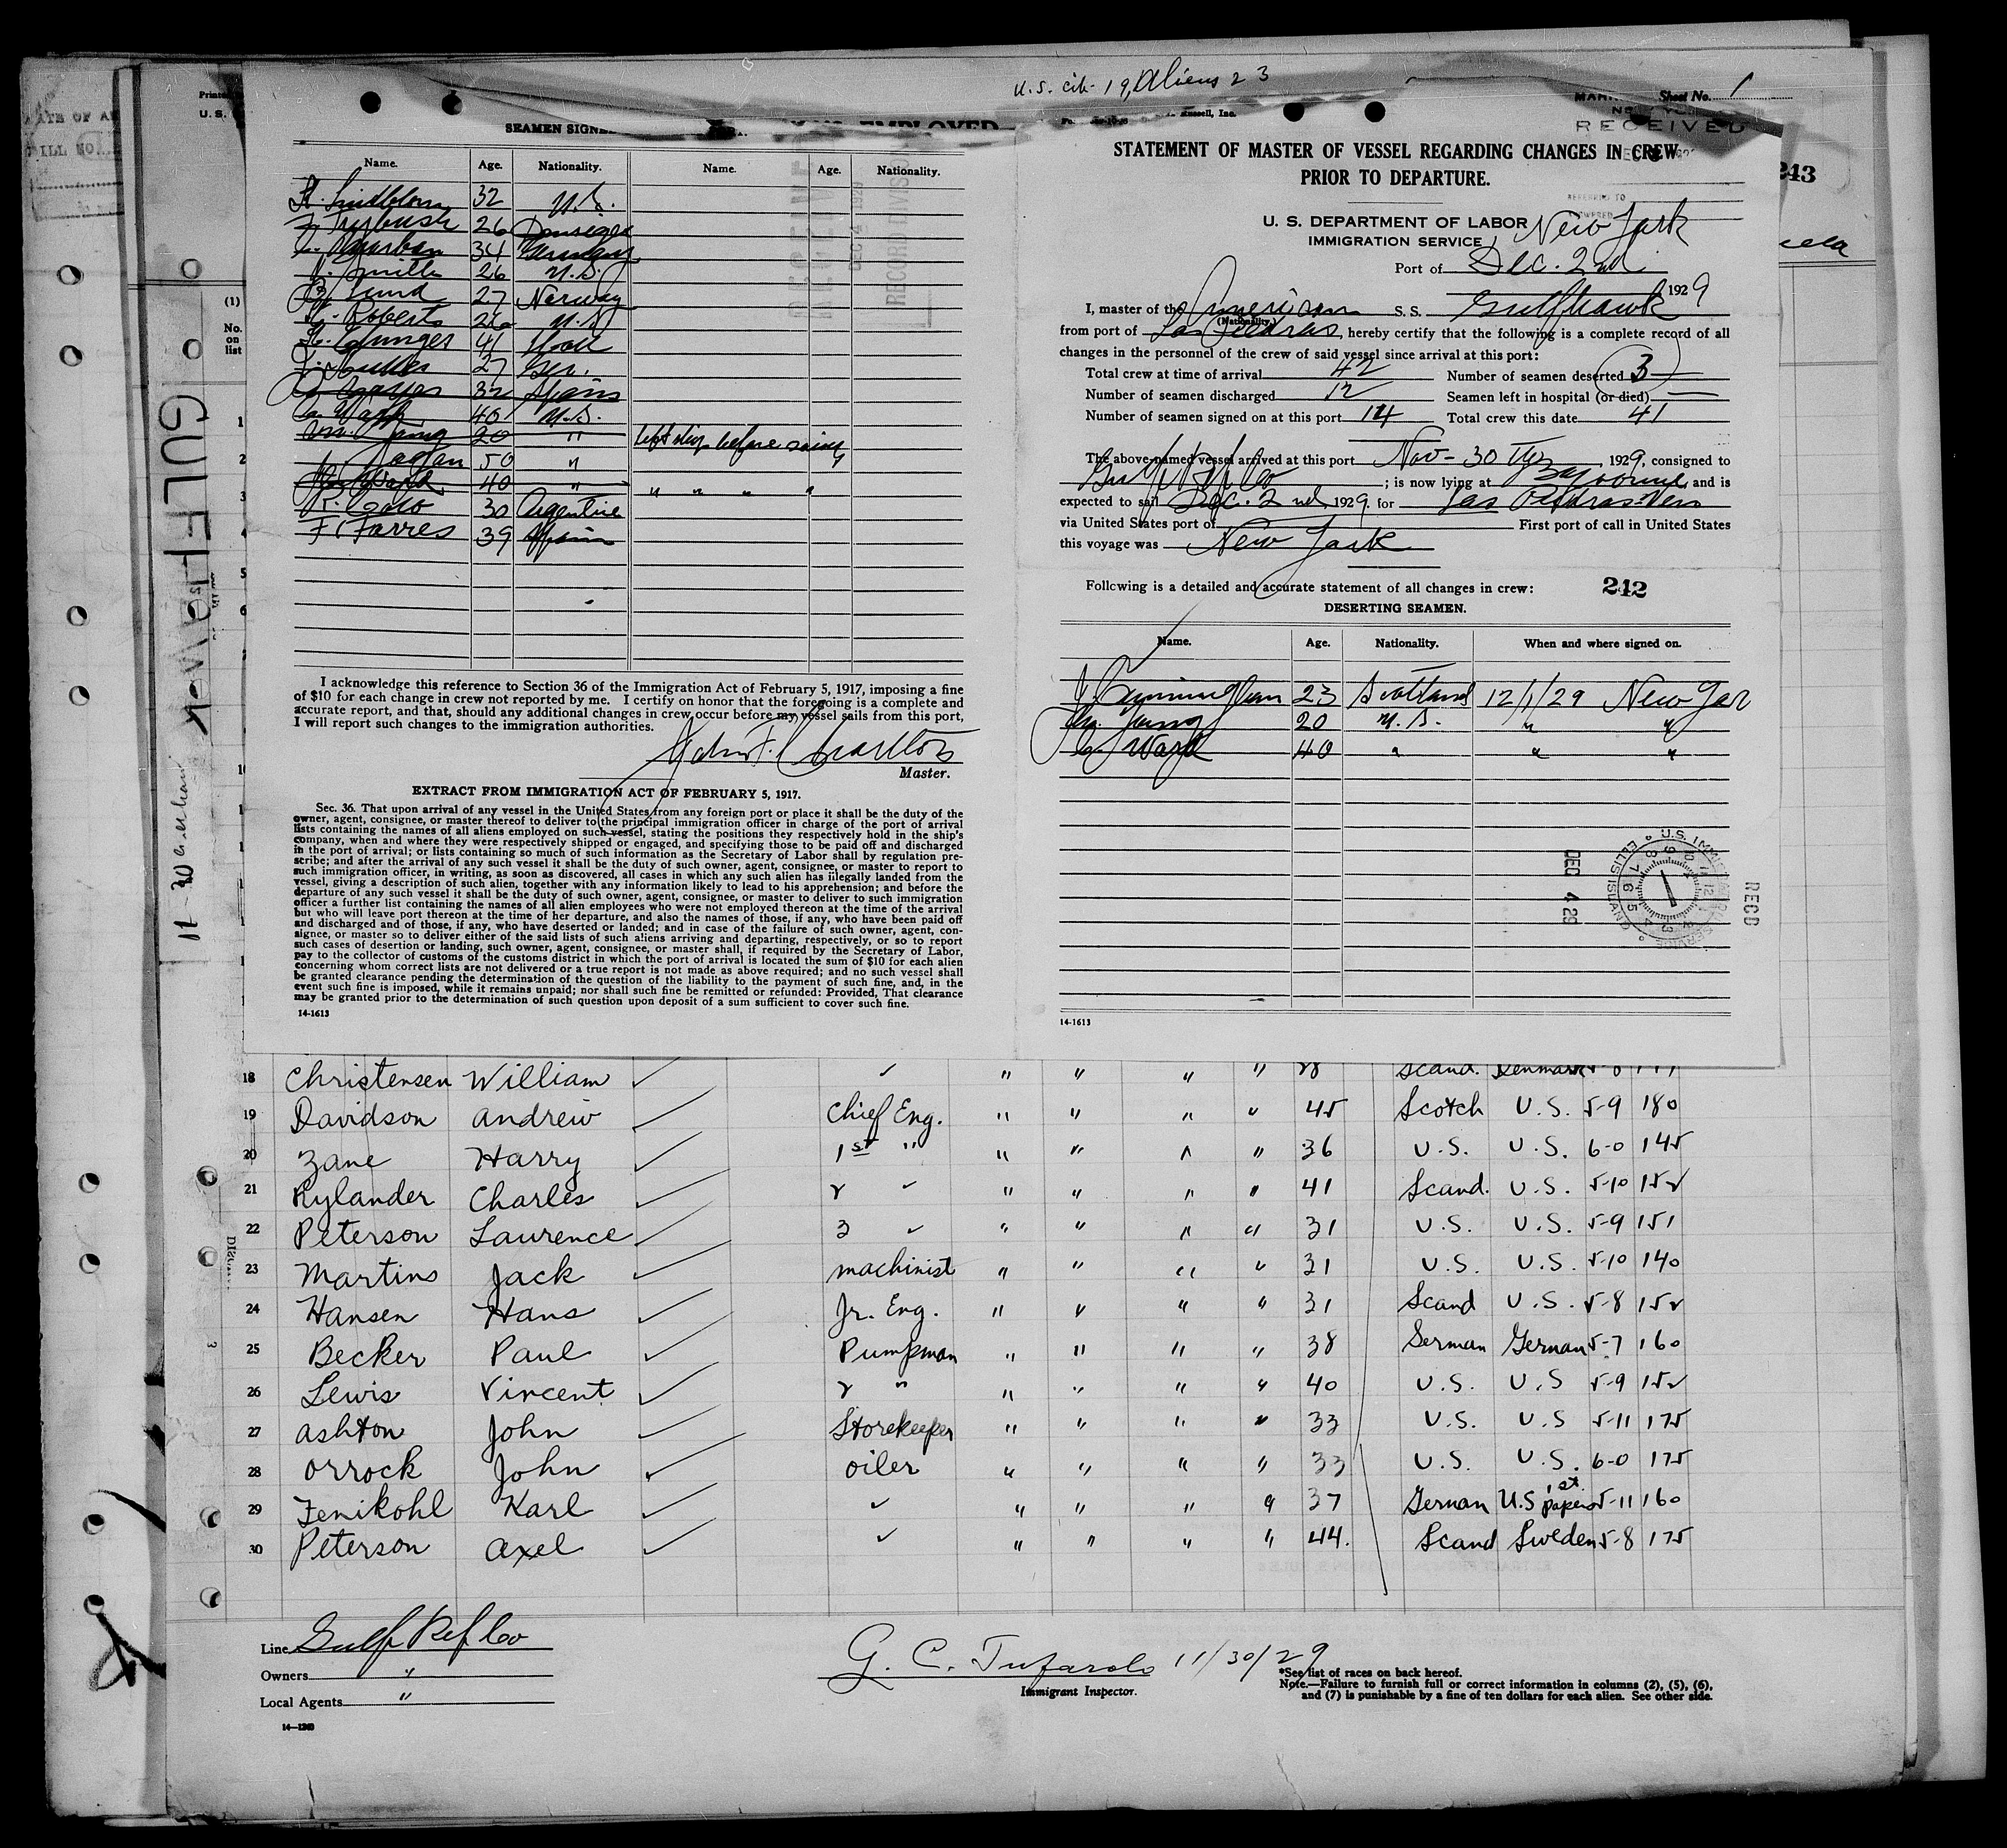 U.S. cit- 19, Aliens 23
Sheet No. 1
RECEIVED
243
SEAMEN SIGNE
Name. Age. Nationality. Name. Age. Nationality.
A. Lindblom 32 U.S.
26
34 Germany
26 U.S.
Lund 27 Norway
Roberts 26 U.S.
41
27 Ger.
32 Spain
40 U.S.
Wm. Young 20 " left ship before sailing
50 "
Ward 40 " " " " "
R. 30 Argentine
F. Farres 39 Spain
I acknowledge this reference to Section 36 of the Immigration Act of February 5, 1917, imposing a fine
of $10 for each change in crew not reported by me. I certify on honor that the foregoing is a complete and
accurate report, and that, should any additional changes in crew occur before my vessel sails from this port,
I will report such changes to the immigration authorities.
Master.
EXTRACT FROM IMMIGRATION ACT OF FEBRUARY 5, 1917.
Sec. 36. That upon arrival of any vessel in the United States from any foreign port or place it shall be the duty of the
owner, agent, consignee, or master thereof to deliver to the principal immigration officer in charge of the port of arrival
lists containing the names of all aliens employed on such vessel, stating the positions they respectively hold in the ship's
company, when and where they were respectively shipped or engaged, and specifying those to be paid off and discharged
in the port of arrival; or lists containing so much of such information as the Secretary of Labor shall by regulation pre-
scribe; and after the arrival of any such vessel it shall be the duty of such owner, agent, consignee, or master to report to
such immigration officer, in writing, as soon as discovered, all cases in which any such alien has illegally landed from the
vessel, giving a description of such alien, together with any information likely to lead to his apprehension; and before the
departure of any such vessel it shall be the duty of such owner, agent, consignee, or master to deliver to such immigration
officer a further list containing the names of all alien employees who were not employed thereon at the time of the arrival
but who will leave port thereon at the time of her departure, and also the names of those, if any, who have been paid off
and discharged and of those, if any, who have deserted or landed; and in case of the failure of such owner, agent, con-
signee, or master so to deliver either of the said lists of such aliens arriving and departing, respectively, or so to report
such cases of desertion or landing, such owner, agent, consignee, or master shall, if required by the Secretary of Labor,
pay to the collector of customs of the customs district in which the port of arrival is located the sum of $10 for each alien
concerning whom correct lists are not delivered or a true report is not made as above required; and no such vessel shall
be granted clearance pending the determination of the question of the liability to the payment of such fine, and, in the
event such fine is imposed, while it remains unpaid; nor shall such fine be remitted or refunded: Provided, That clearance
may be granted prior to the determination of such question upon deposit of a sum sufficient to cover such fine.
14-1613
STATEMENT OF MASTER OF VESSEL REGARDING CHANGES IN CREW
PRIOR TO DEPARTURE.
U. S. DEPARTMENT OF LABOR
IMMIGRATION SERVICE
New York
Port of Dec. 2nd
1929
I, master of the American S. S. Gulfhawk
(Nationality)
from port of Las Piedras, hereby certify that the following is a complete record of all
changes in the personnel of the crew of said vessel since arrival at this port:
Total crew at time of arrival 42 Number of seamen deserted 3
Number of seamen discharged 12 Seamen left in hospital (or died) —
Number of seamen signed on at this port 14 Total crew this date 41
The above-named vessel arrived at this port Nov-30th, 1929, consigned to
Gulf Ref Co; is now lying at Bayonne, and is
expected to sail Dec. 2nd, 1929. for Las Piedras Ven
via United States port of First port of call in United States
this voyage was New York
Following is a detailed and accurate statement of all changes in crew: 242
DESERTING SEAMEN.
Name. Age. Nationality. When and where signed on.
J. Cunningham 23 Scotland 12/1/29 New Yor
Wm. Young 20 U.S. " "
C. Ward 40 " " "
DEC 4 29
U.S. IMMIGRATION SERVICE ELLIS ISLAND
RECD
14-1613
GULFHawk
11-30
(1)
No.
on
list
18 Christensen William ✓ ✓ " " " " 28 Scand. Denmark 5-8
19 Davidson Andrew ✓ Chief Eng. " " " " 45 Scotch U.S. 5-9 180
20 Zane Harry ✓ 1st " " " " " 36 U.S. U.S. 6-0 145
21 Rylander Charles ✓ 2 ✓ " " " " 41 Scand. U.S. 5-10 152
22 Peterson Laurence ✓ 3 ✓ " " " " 31 U.S. U.S. 5-9 151
23 Martins Jack ✓ machinist " " " " 31 U.S. U.S. 5-10 140
24 Hansen Hans ✓ Jr. Eng. " " " " 31 Scand U.S. 5-8 152
25 Becker Paul ✓ Pumpman " " " " 38 German German 5-7 160
26 Lewis Vincent ✓ 2 " " " " " 40 U.S. U.S 5-9 152
27 Ashton John ✓ Storekeeper " " " " 33 U.S. U.S 5-11 175
28 Orrock John ✓ oiler " " " " 33 U.S. U.S. 6-0 175
29 Fenikohl Karl ✓ ✓ " " " " 37 German U.S 1st papers 5-11 160
30 Peterson Axel ✓ ✓ " " " " 44. Scand Sweden 5-8 175
Line Gulf Ref Co
Owners "
Local Agents "
14—1240
G. C. Tufarolo 11/30/29
Immigrant Inspector.
*See list of races on back hereof.
Note.—Failure to furnish full or correct information in columns (2), (5), (6),
and (7) is punishable by a fine of ten dollars for each alien. See other side.